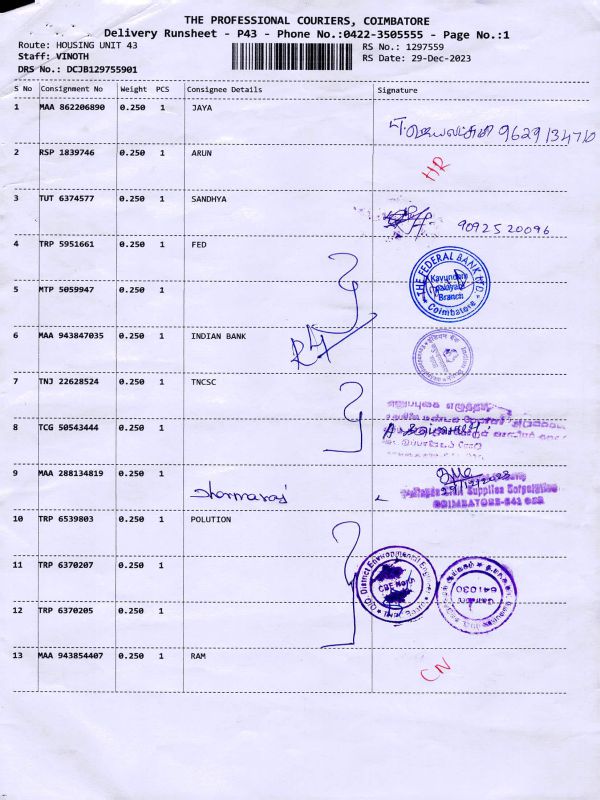 THE PROFESSIONAL COURIERS, COIMBATORE
Delivery Runsheet - P43 - Phone No.:0422-3505555 - Page No.:1
Route: HOUSING UNIT 43 RS No.: 1297559
Staff: VINOTH RS Date: 29-Dec-2023
DRS No.: DCJB129755901
S No Consignment No Weight PCS Consignee Details Signature
1 MAA 862206890 0.250 1 JAYA
9629134710
2 RSP 1839746 0.250 1 ARUN
HR
3 TUT 6374577 0.250 1 SANDHYA
9092520096
4 TRP 5951661 0.250 1 FED
THE FEDERAL BANK LTD.
Kavundam
palayam
Branch
Coimbatore
5 MTP 5059947 0.250 1
6 MAA 943847035 0.250 1 INDIAN BANK
R4
7 TNJ 22628524 0.250 1 TNCSC
8 TCG 50543444 0.250 1
9 MAA 288134819 0.250 1
Dharmaraj
29/12/2023
Supplies Corporation
COIMBATORE-641
10 TRP 6539803 0.250 1 POLUTION
11 TRP 6370207 0.250 1
District Environmental Engineer
641030
12 TRP 6370205 0.250 1
13 MAA 943854407 0.250 1 RAM
CN